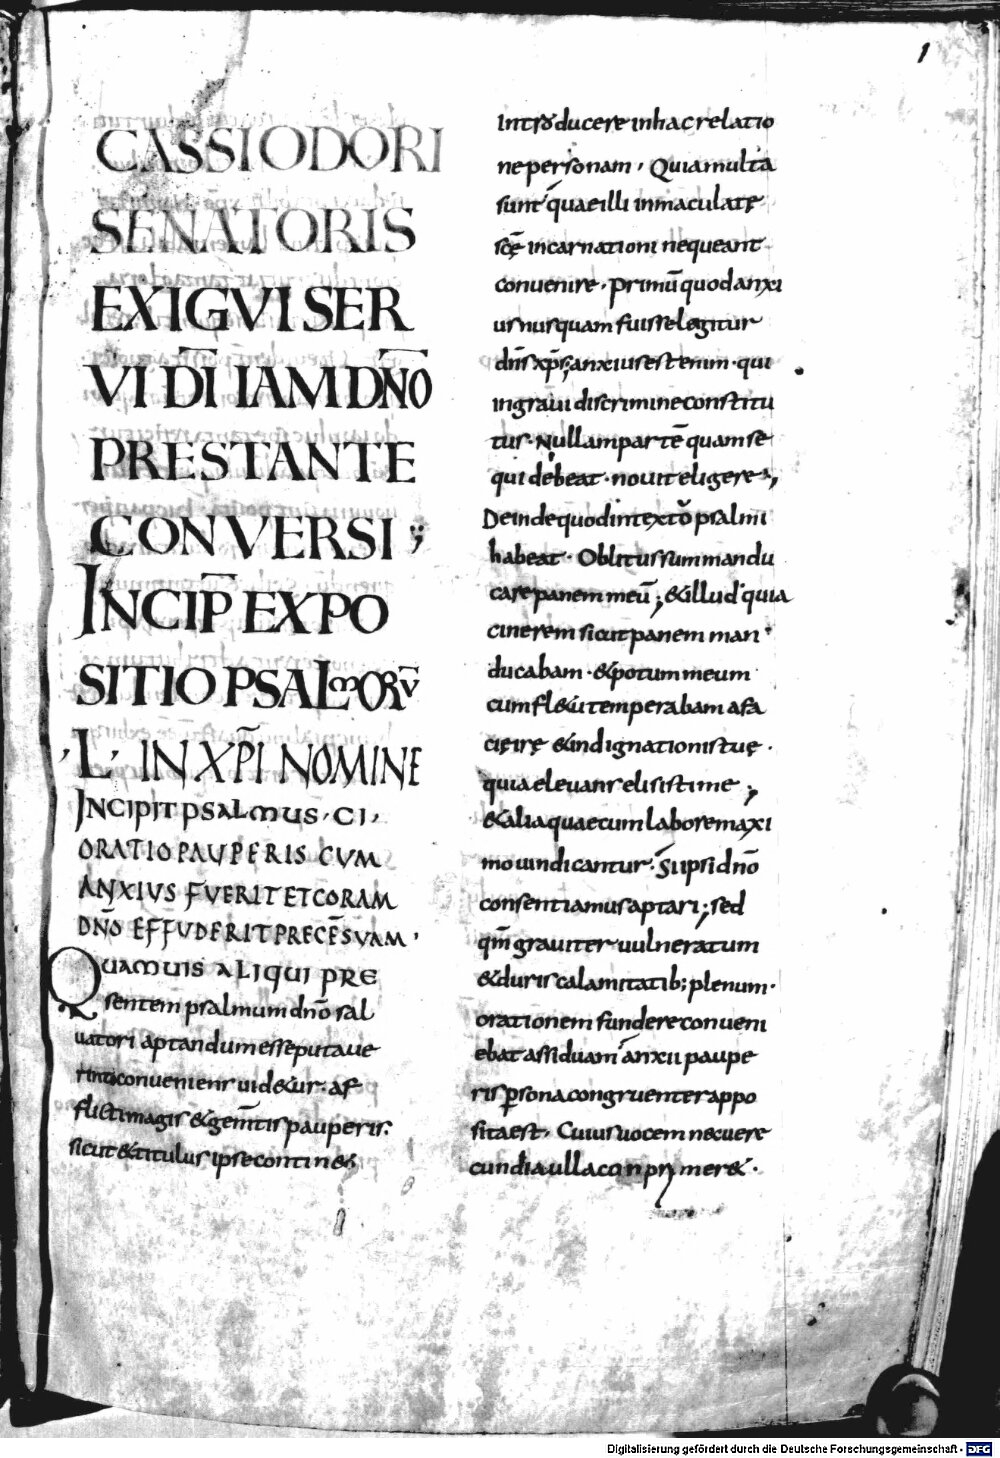 1
CASSIODORI
SENATORIS
EXIGVI SER
VI DI̅ IAM DN̅O
PRESTANTE
CONVERSI ;
INCIP̅ EXPO
SITIO PSALMORV̅
,L, IN XP̅I NOMINE
INCIPIT PSALMUS, CI,
ORATIO PAUPERIS CVM
ANXIVS FVERIT ET CORAM
DN̅O EFFUDERIT PRECE̅ SVAM,
QUAMUIS ALIQUI PRE
sentem psalmum dn̅o sal
uatori aptandum esse putaue
rint conuenienr uid&ur. af
flicti magis & gem̅tis pauperis.
sicut & titulus ipse contin&
Introducere in hac relatio
ne personam, Quia multa
sunt quae illi inmaculatę
sc̅ę incarnationi nequeant
conuenire. primu̅ quod anxi
us nusquam fuisse legitur
dn̅s xp̅s; anxius est enim. qui
in graui discrimine constitu
tus. Nullam parte̅ quam se
qui debeat. nouit eligere,
Deinde quod in texto psalmi
habeat. Oblitus sum mandu
care panem meu̅; & illud quia
cinerem sicut panem man
ducabam. & potum meum
cum fl&u temperabam a fa
cię irę & indignationis tuę.
quia eleuans elisisti me;
& alia quae cum labore maxi
mo uindicantur. Si ipsi dn̅o
consentiamus aptari; sed
qm̅ grauiter uulneratum
& duris calamitatib; plenum.
orationem fundere conueni
ebat assiduam anxii paupe
ris p̱sona congruenter appo
sita est. Cuius uocem nec uere
cundia ulla conprimer&.
Digitalisierung gefördert durch die Deutsche Forschungsgemeinschaft - DFG